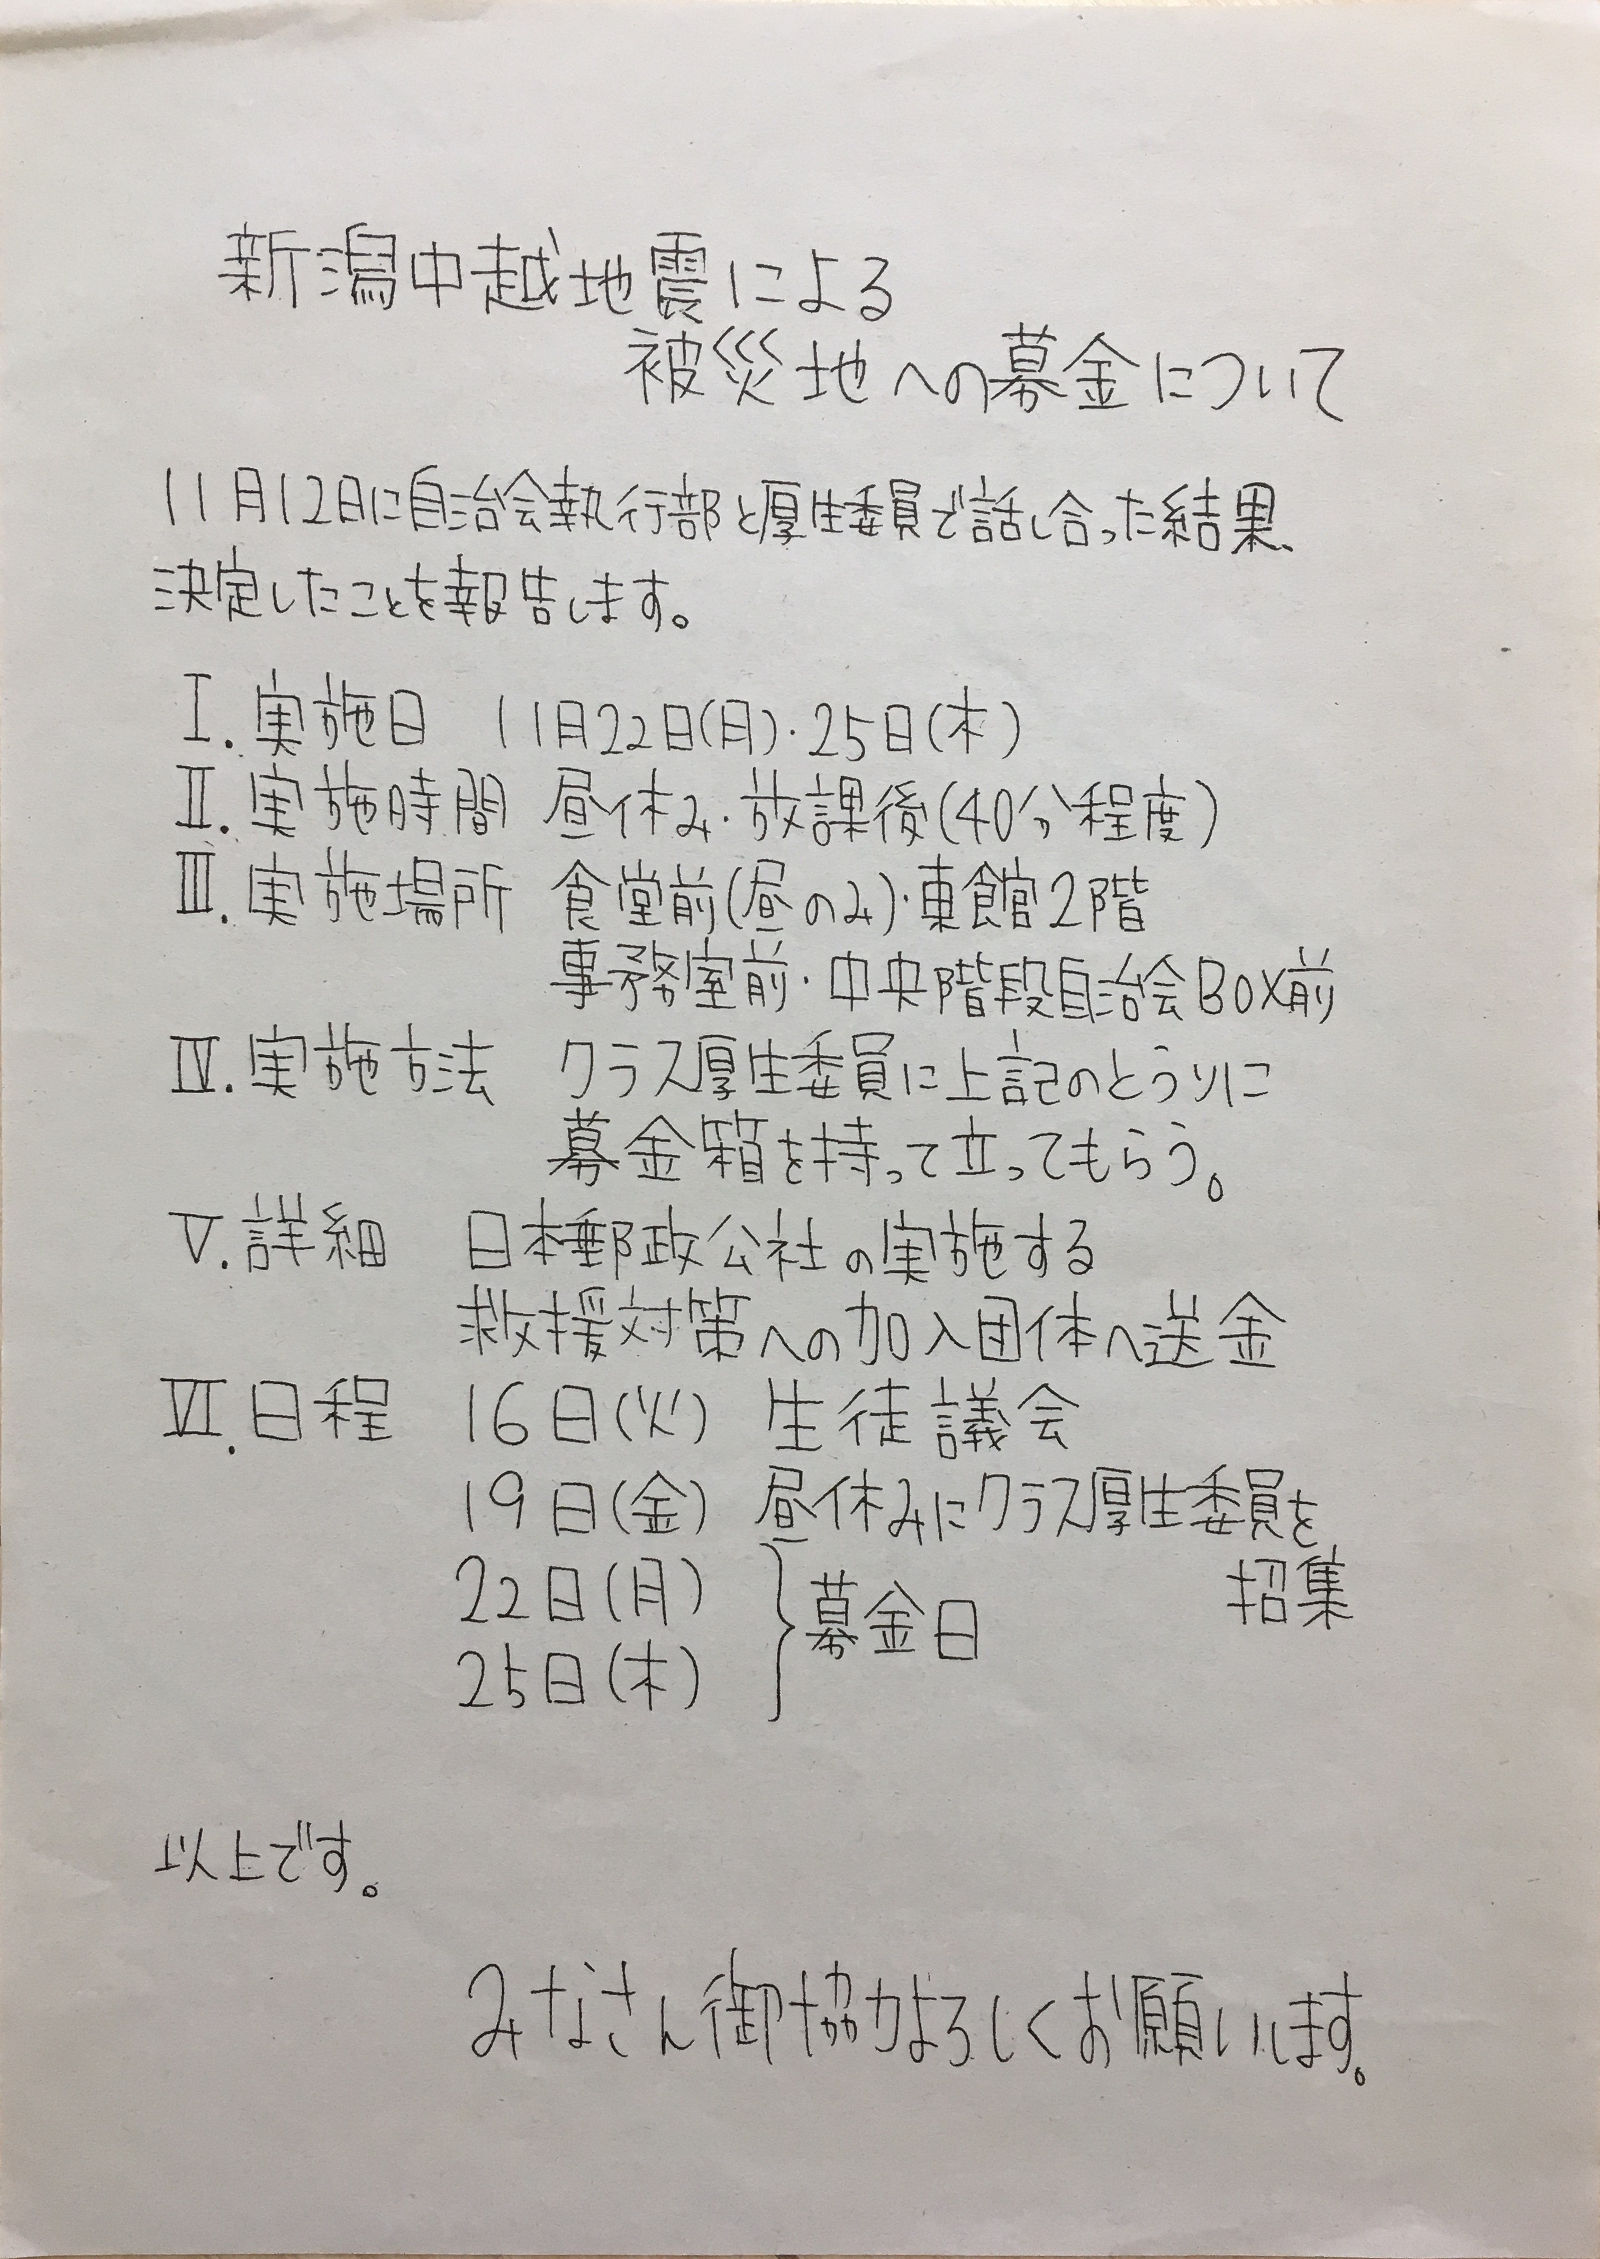 新潟中越地震による
被災地への募金について
11月12日に自治会執行部と厚生委員で話し合った結果、
決定したことを報告します。
Ⅰ.実施日 11月22日(月)・25日(木)
Ⅱ.実施時間 昼休み・放課後(40分程度)
Ⅲ.実施場所 食堂前(昼のみ)・東館2階
事務室前・中央階段自治会BOX前
Ⅳ.実施方法 クラス厚生委員に上記のとうりに
募金箱を持って立ってもらう。
Ⅴ.詳細 日本郵政公社の実施する
救援対策への加入団体へ送金
Ⅵ.日程 16日(火) 生徒議会
19日(金) 昼休みにクラス厚生委員を
招集
22日(月)
25日(木)
募金日
以上です。
みなさん御協力よろしくお願いします。